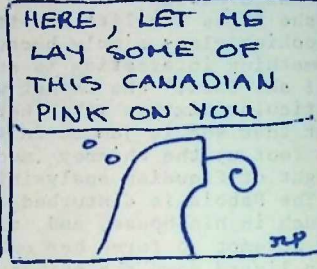 HERE, LET ME
LAY SOME OF
THIS CANADIAN
PINK ON YOU